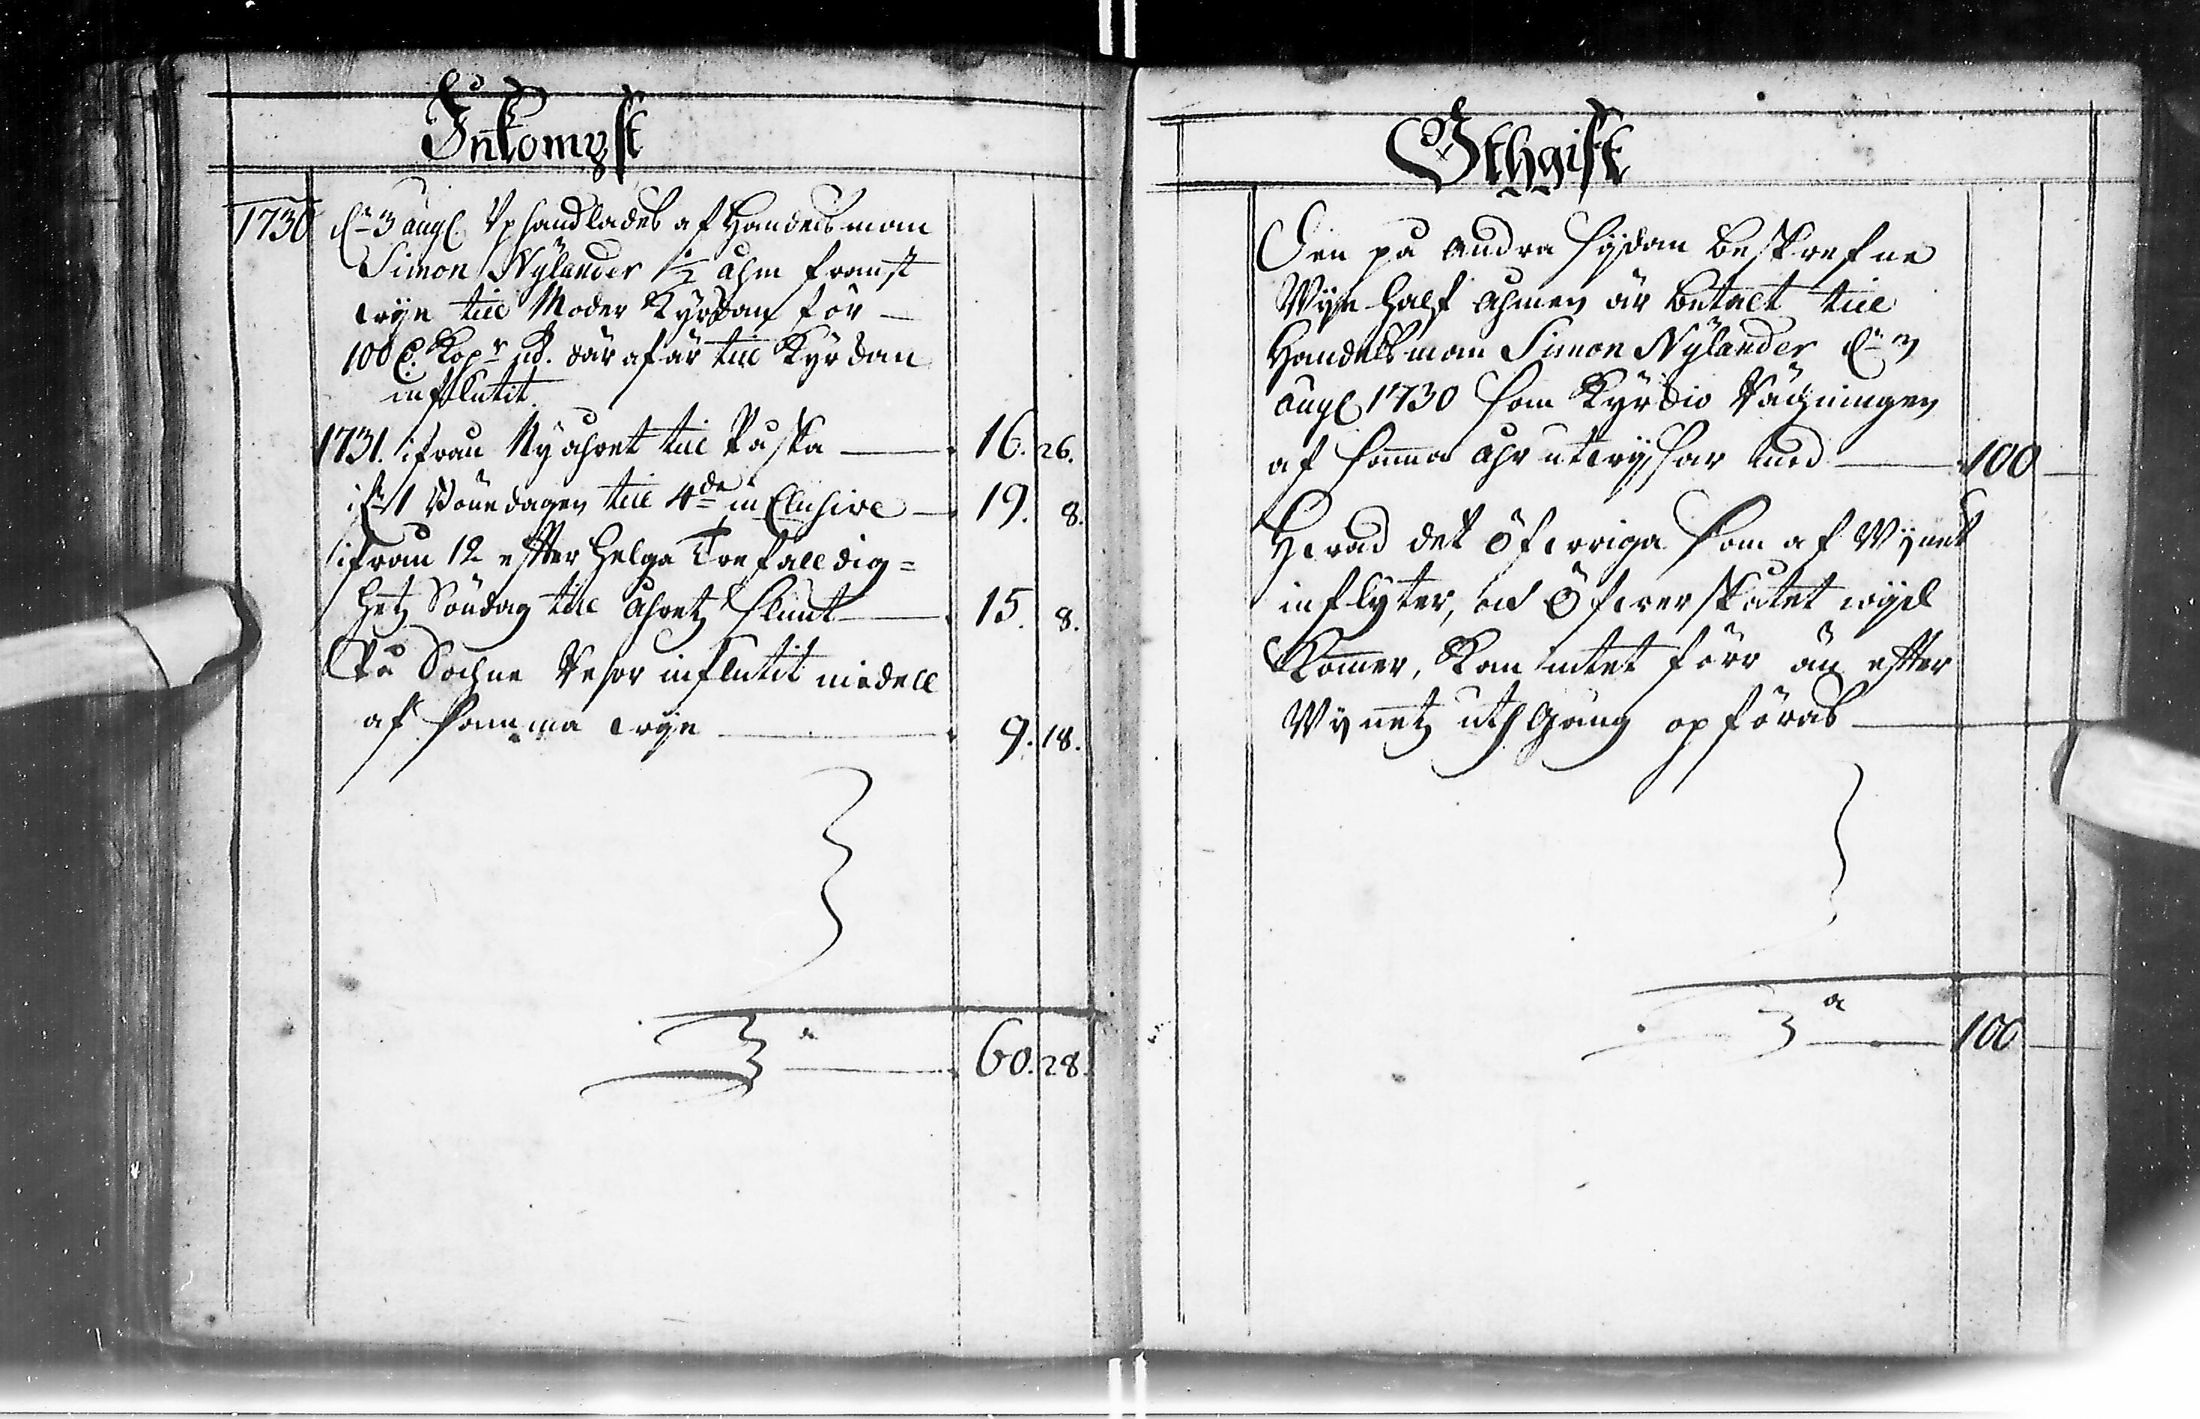 Inkombst
1730 d. 3 augl. Uphandlades af Handelsman
Simon Nÿlander 1/2 åhm franst
wijn till Moder Kyrckan för —
100 d. Kopr mt. där af är till Kyrckan
influtit.
1731. ifrån Nyahret till Påska — 16. 26.
1 Bönedagen till 4de inClusive — 19. 8.
ifrån 12 effter Helga Trefalldig=
hetz Söndag till ahretz sluut — 15. 8.
På Sochne Resor influtit medell
af samma wijn — 9. 18.
Sa — 60. 28.
Uthgifft
Den på andra sijdan beskrefne
Wijn half Ahmen är betalt till
Handelsman Simon Nÿlander d. 3
augl 1730 som Kyrckio Räkningen
af samma Ahr utwijsar med — 100 —
Hwad det öfwriga som af Wijnet
inflyter, och Öfwerskåtet wijd
Kommer, kan intet förr än effter
Wijnetz uthGång opföras —
Sa — 100 —